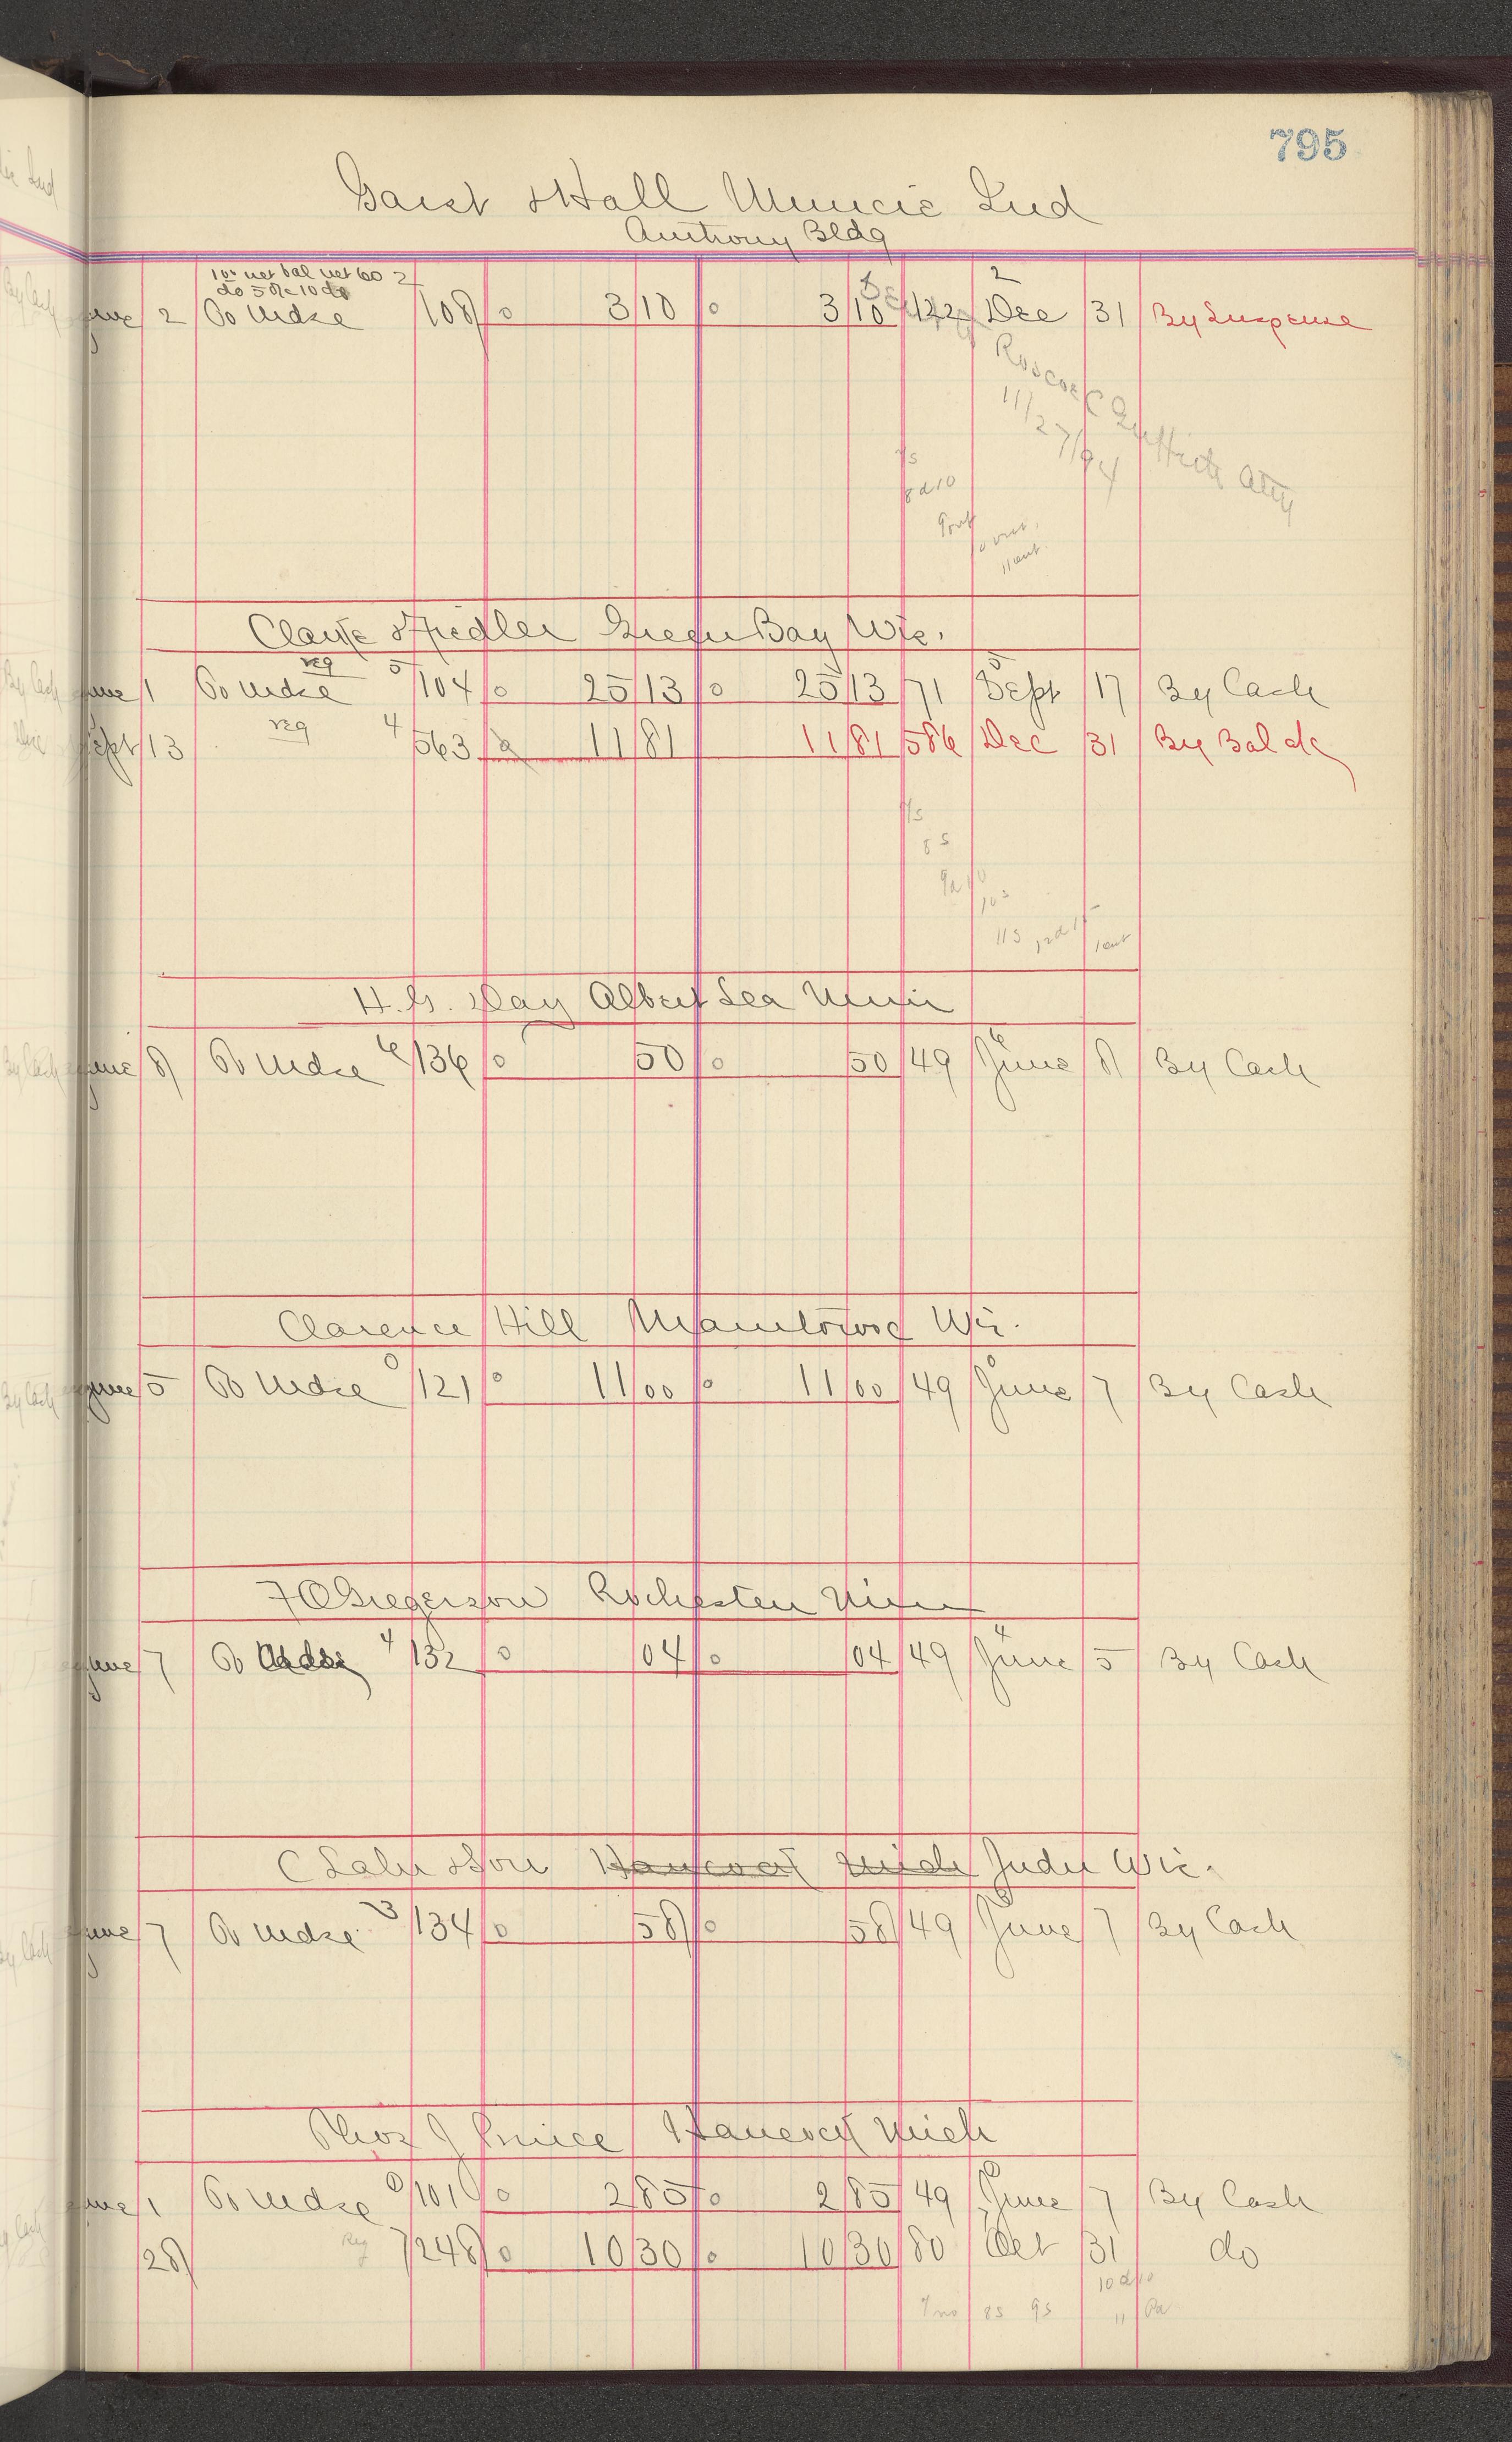 795
Garst & Hall Muncie Ind
Anthony Bldg
10° net bal net 60 2
do 5 % 10 do
June 2 To Mdse 108 0 3 10 0 3 10 122 2 Dec 31 By Suspense
Roscoe C Griffith Atty
11/27/94
7s
8d10
9 out
10 out
11 out
Clark & Fiedler Green Bay Wis.
June 1 To Mdse reg 5 104 0 25 13 0 25 13 71 5 Sept 17 By Cash
Sept 13 reg 4 563 11 81 11 81 586 Dec 31 By Bal
7s
8s
9d10
10s
11s 12d15 1 out
H. G. Day Albert Lea Minn
June 8 To Mdse 6 136 0 50 0 50 49 6 June 8 By Cash
Clarence Hill Manitowoc Wis.
June 5 To Mdse 0 121 0 11 00 0 11 00 49 0 June 7 By Cash
F O Gregerson Rochester Minn
June 7 To Mdse 4 132 0 04 0 04 49 4 June 5 By Cash
C Lahr & Son Hancock Mich Juda Wis.
June 7 To Mdse 3 134 0 58 0 58 49 June 7 By Cash
Thos J Prince Hancock Mich
June 1 To Mdse 0 101 0 2 85 0 2 85 49 0 June 7 By Cash
28 Reg 7 248 0 10 30 0 10 30 80 7 Oct 31 do
10d10
7 no 8s 9s 11 Pd